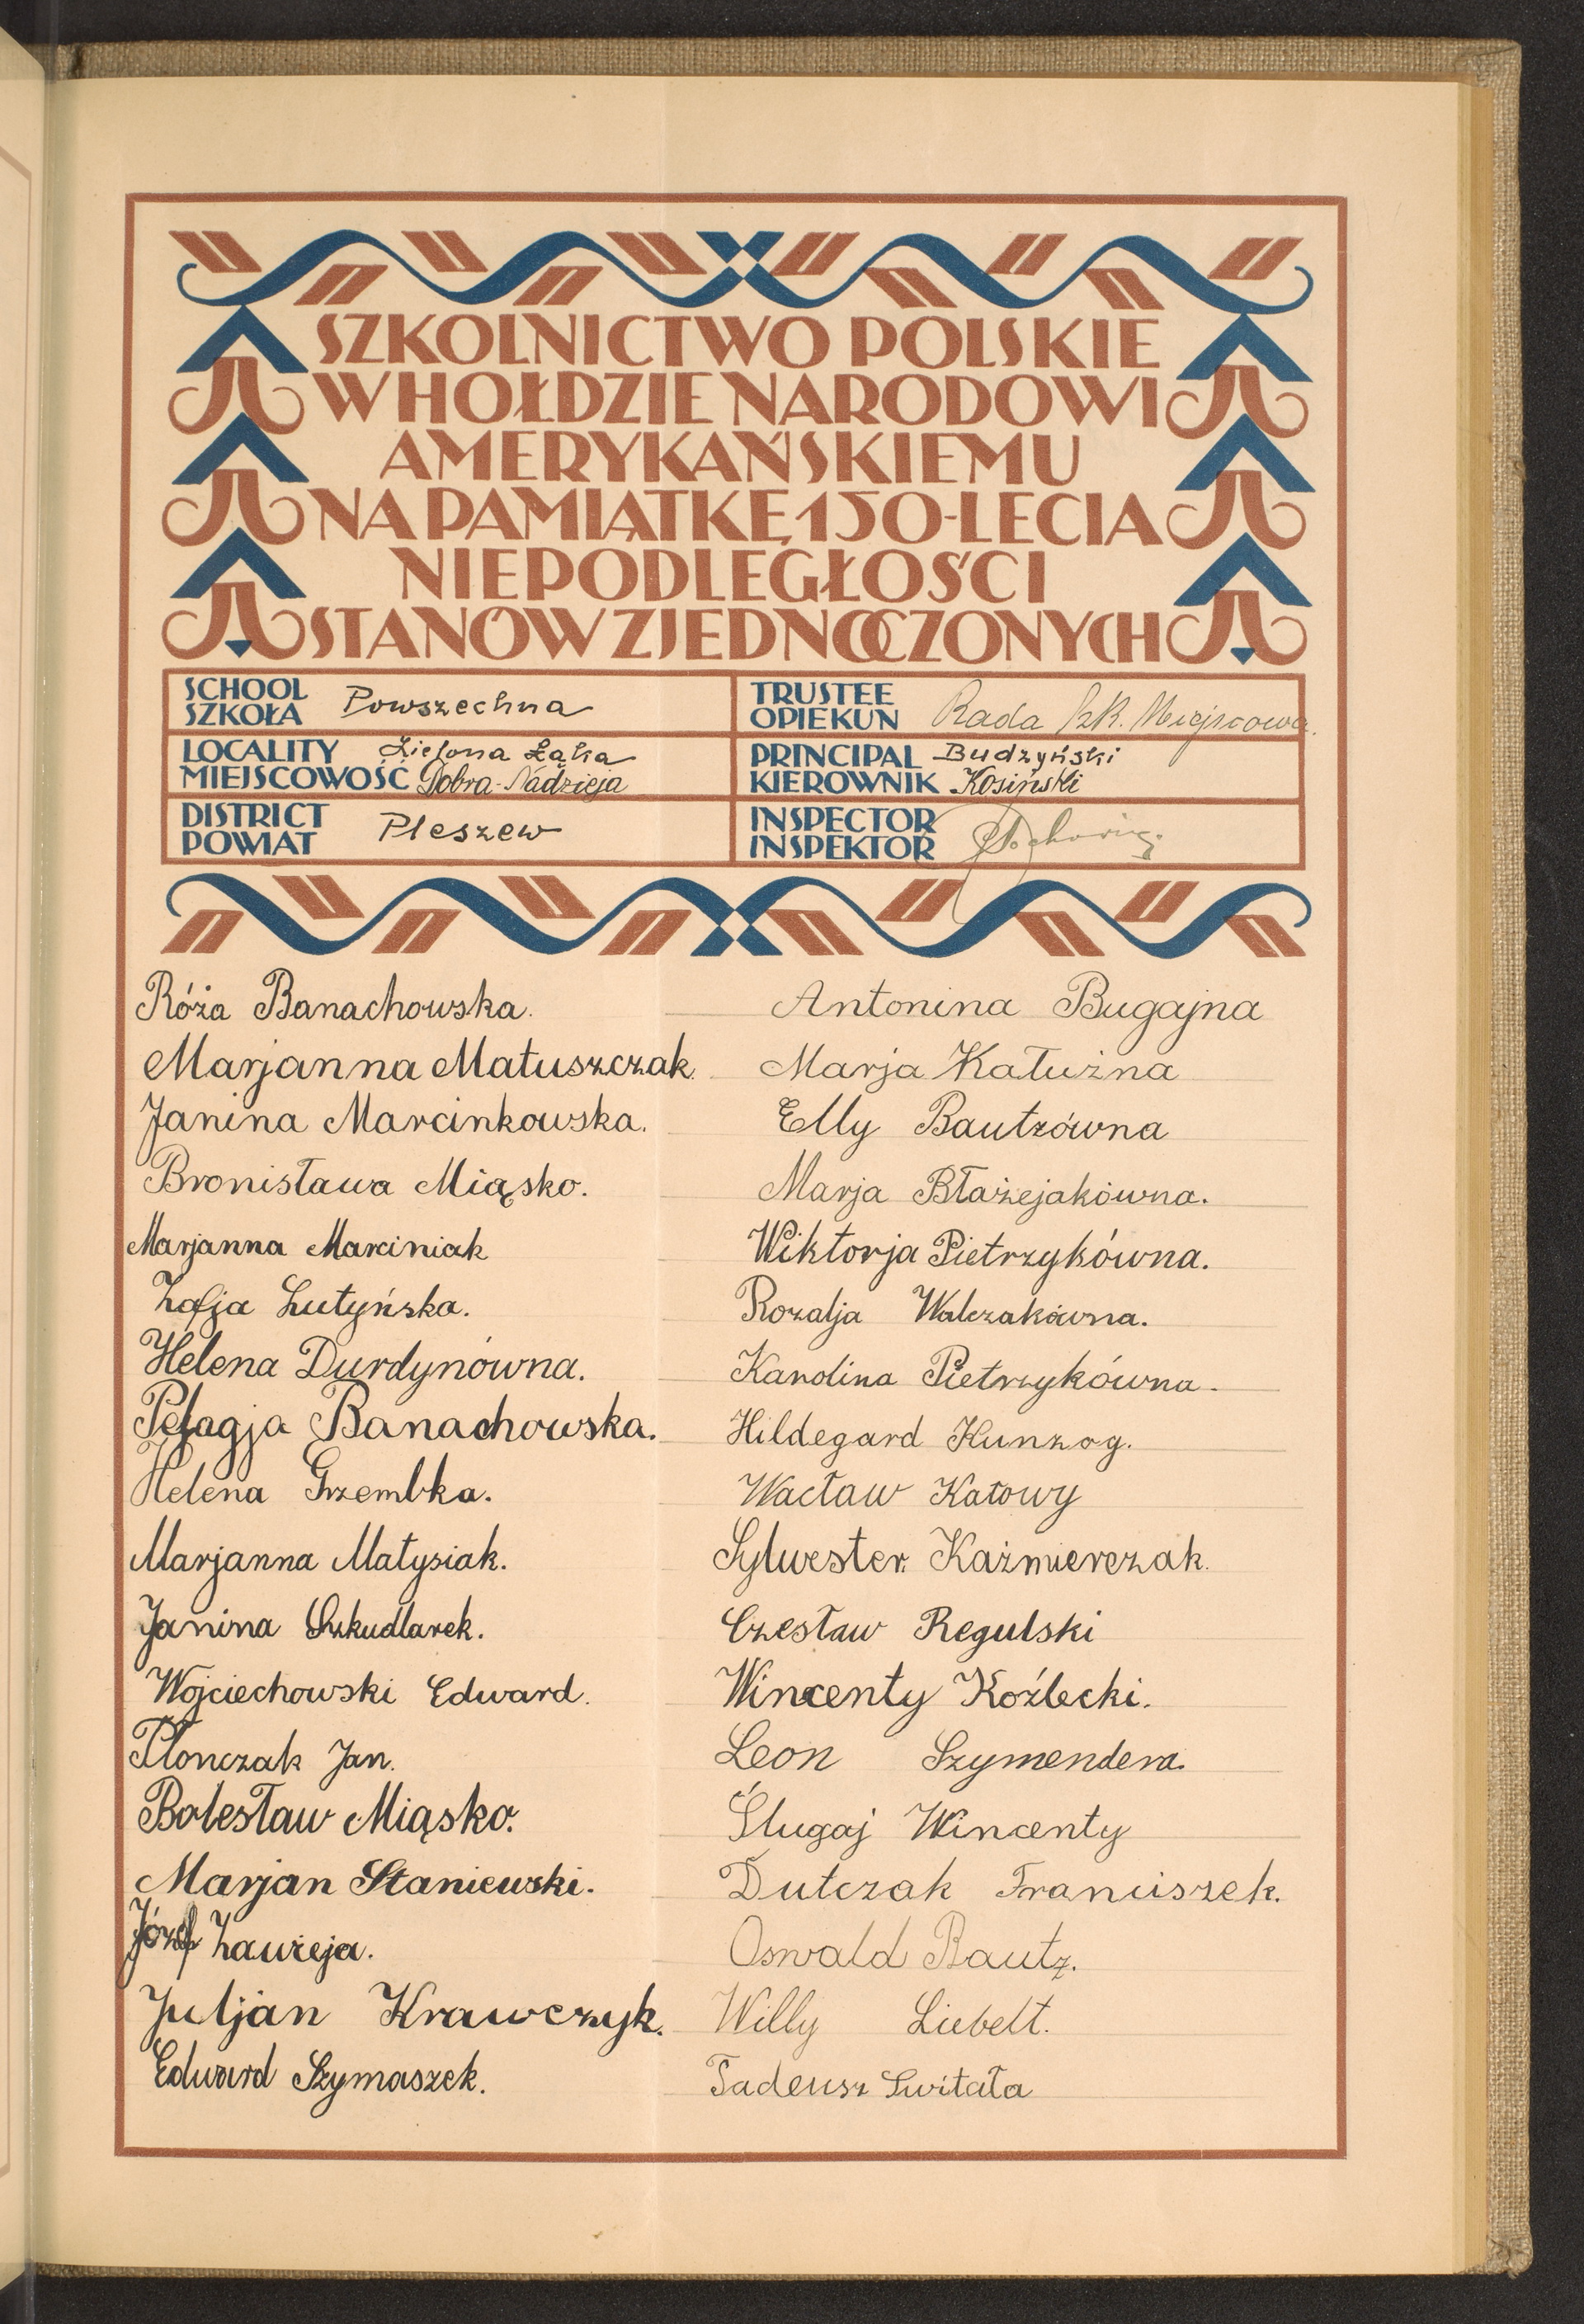 SZKOLNICTWO POLSKIE
W HOŁDZIE NARODOWI
AMERYKAŃSKIEMU
NA PAMIĄTKĘ 150-LECIA
NIEPODLEGŁOŚCI
STANÓW ZJEDNOCZONYCH
SCHOOL
SZKOŁA Powszechna
LOCALITY Zielona Łąka
MIEJSCOWOŚĆ Dobra-Nadzieja
DISTRICT
POWIAT Pleszew
TRUSTEE
OPIEKUN Rada Szk. Miejscowa
PRINCIPAL Budzyński
KIEROWNIK Kosiński
INSPECTOR
INSPEKTOR
Róża Banachowska.
Marjanna Matuszczak.
Janina Marcinkowska.
Bronisława Miąsko.
Marjanna Marciniak
Zofja Lutyńska.
Helena Durdynówna.
Pelagja Banachowska.
Helena Grzembka.
Marjanna Matysiak.
Janina Szkudlarek.
Wojciechowski Edward.
Płonczak Jan.
Bolesław Miąsko.
Marjan Staniewski.
Józef Zawieja.
Juljan Krawczyk.
Edward Szymaszek.
Antonina Bugajna
Marja Kałużna
Elly Bautzówna
Marja Błażejakówna.
Wiktorja Pietrzykówna.
Rozalja Walczakówna.
Karolina Pietrzykówna.
Hildegard Kunzog.
Wacław Katowy
Sylwester Kaźmierczak.
Czesław Regulski
Wincenty Koźlecki.
Leon Szymendera.
Ślugaj Wincenty
Dutczak Franciszek.
Oswald Bautz.
Willy Liebelt.
Tadeusz Switała